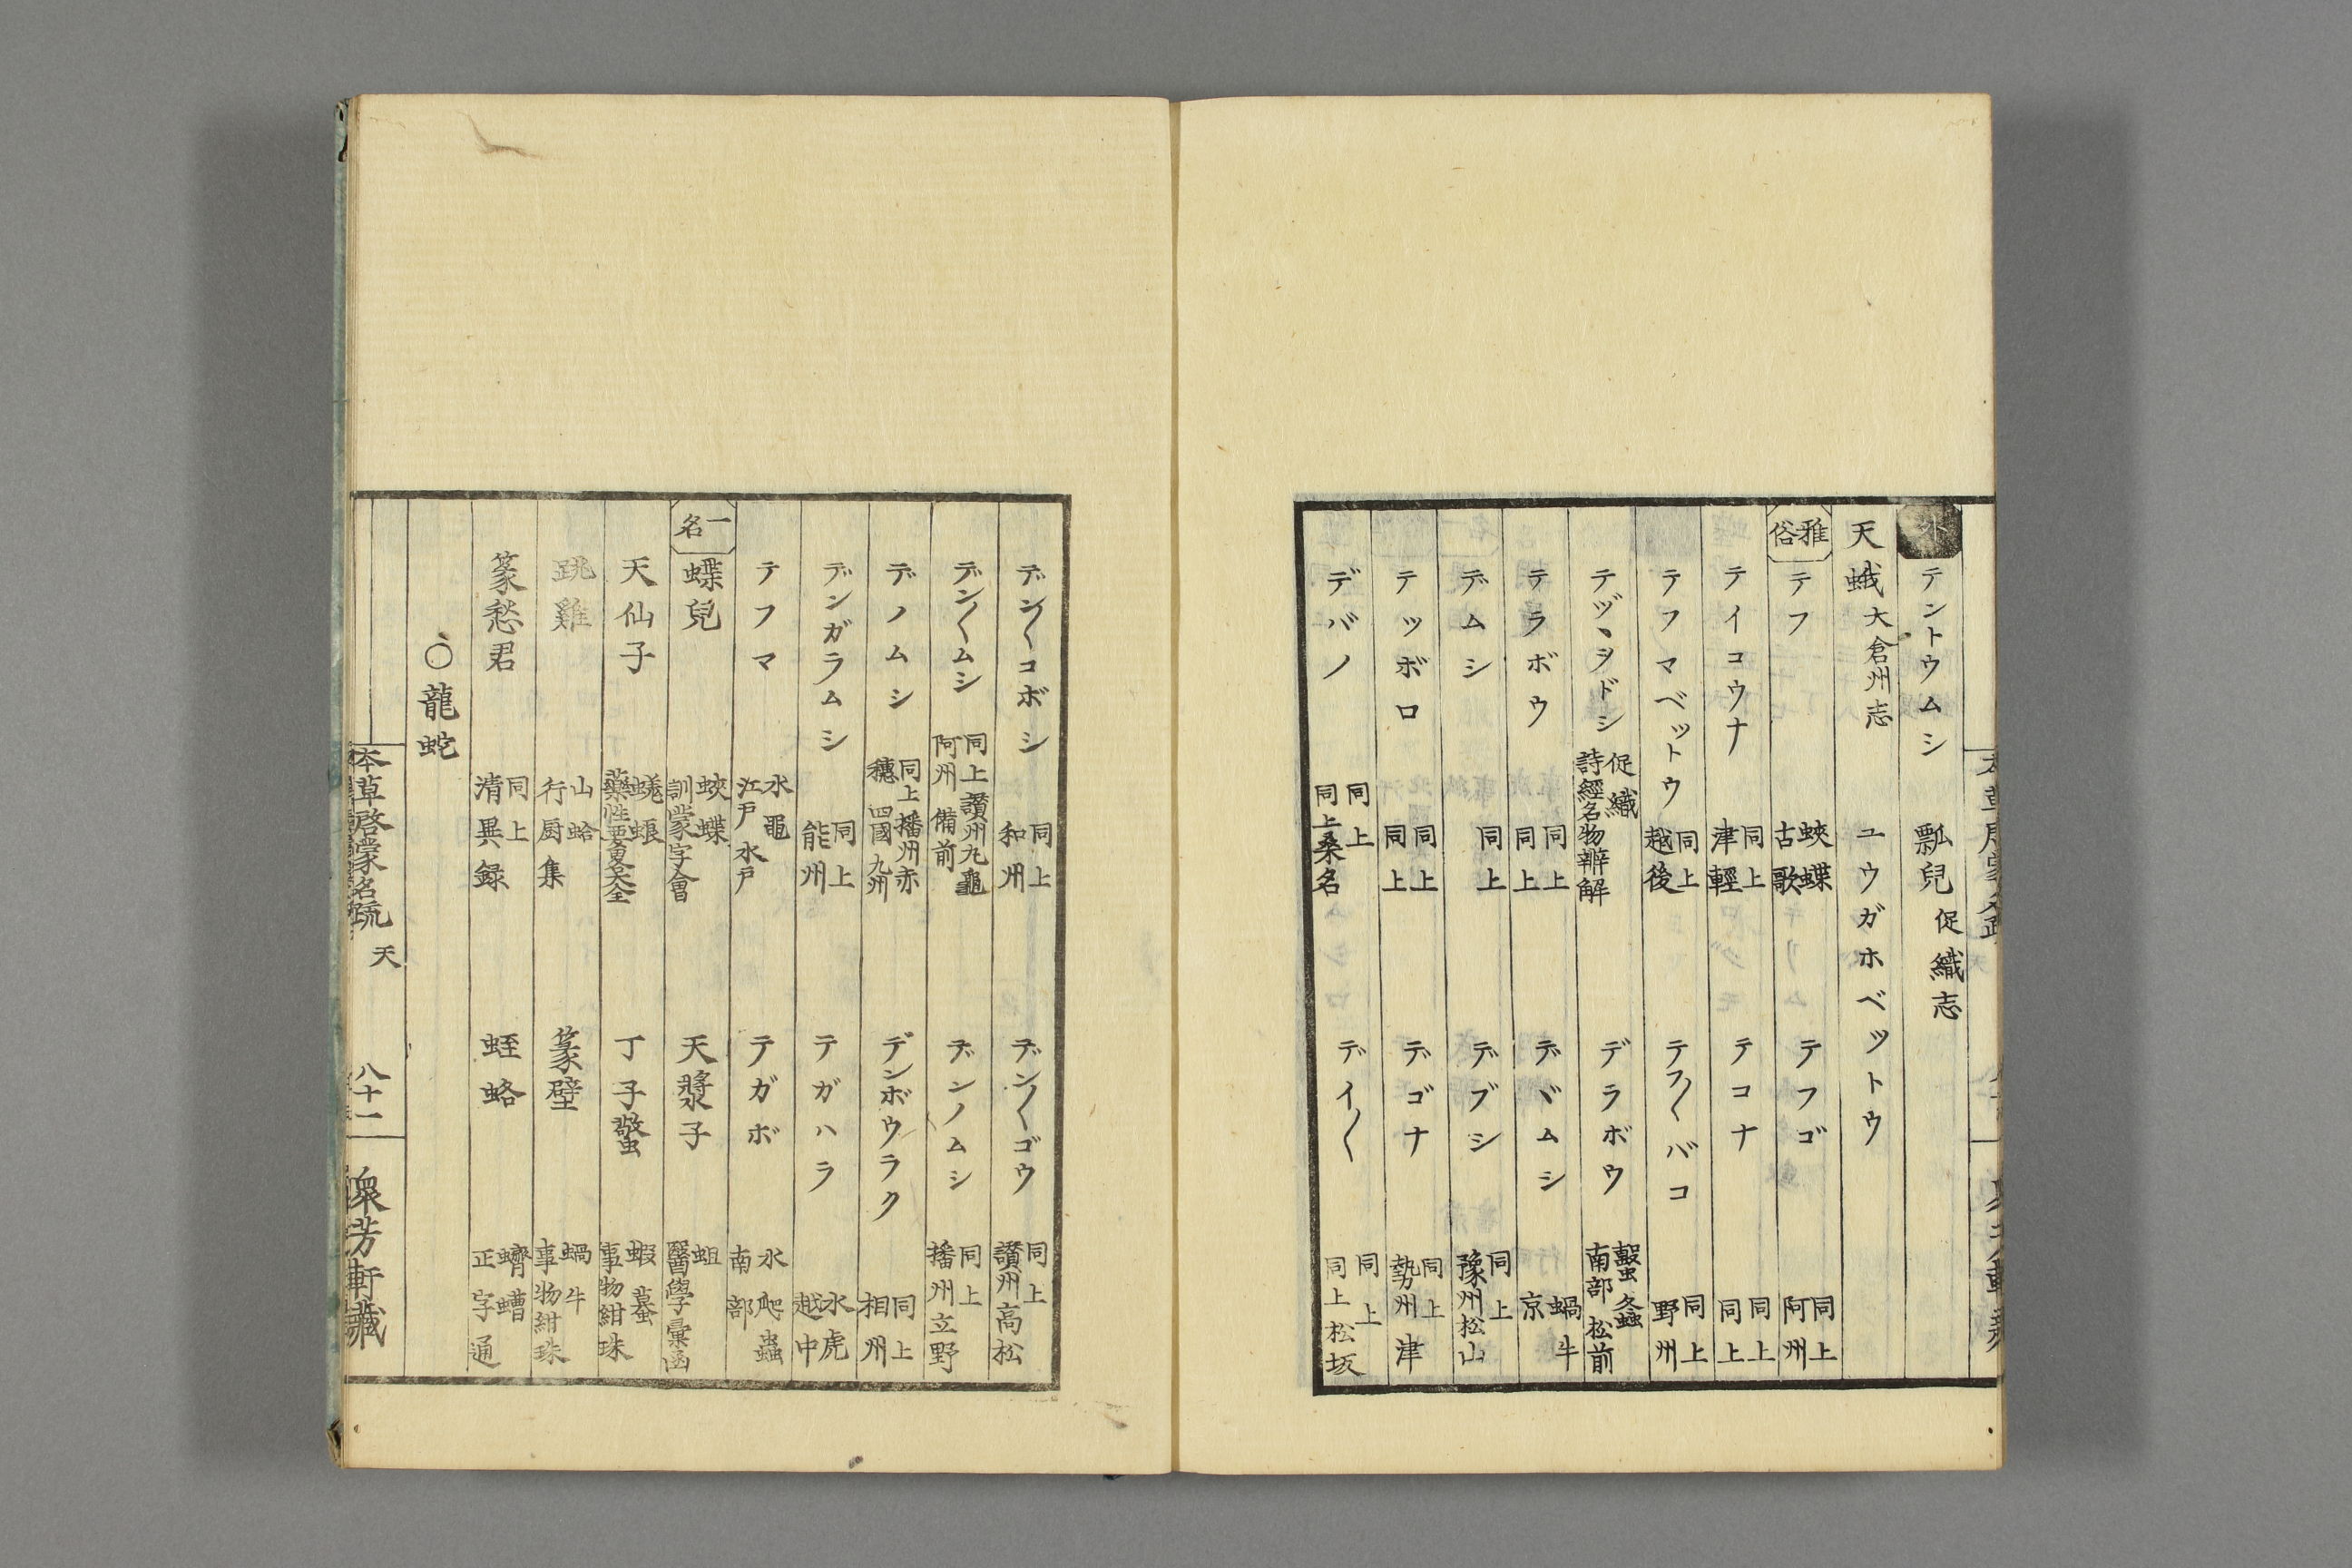 外 テントウムシ 瓢兒 促織志
天蛾 大倉州志 ユウガホベットウ
雅俗 テフ 蛺蝶 古歌 テフゴ 同上 阿州
テイコウナ 同上 津輕 テコナ 同上 同上
テフマベットウ 同上 越後 テフ〱バコ 同上 野州
テヅヽヲドシ 促織 詩經名物辨解 デラボウ 螽 南部 松前
テラボウ 同上 同上 デヾムシ 蝸牛 京
デムシ 同上 デブシ 同上 豫州松山
テッボロ 同上 同上 デゴナ 同上 勢州 津
デバノ 同上 同上桑名 デイ〱 同上 同上松坂
デン〱コボシ 同上 和州 デン〱ゴウ 同上 讃州高松
デン〱ムシ 同上讃州丸龜 阿州 備前 デンノムシ 同上 播州立野
デノムシ 同上播州赤穗 四國 九州 デンボウラク 同上 相州
デンガラムシ 同上 能州 テガハラ 水虎 越中
テフマ 水黽 江戸 水戸 テガボ 水爬蟲 南部
一名 蝶兒 蛺蝶 訓蒙字會 天漿子 蛆 醫學彙函
天仙子 蜣蜋 藥性要畧大全 丁子螌 蝦蟇 事物紺珠
跳雞 山蛤 行厨集 篆壁 蝸牛 事物紺珠
篆愁君 同上 清異録 蛭蛒 蠐螬 正字通
〇龍蛇
本草啓蒙名疏 天 八十二 衆芳軒藏